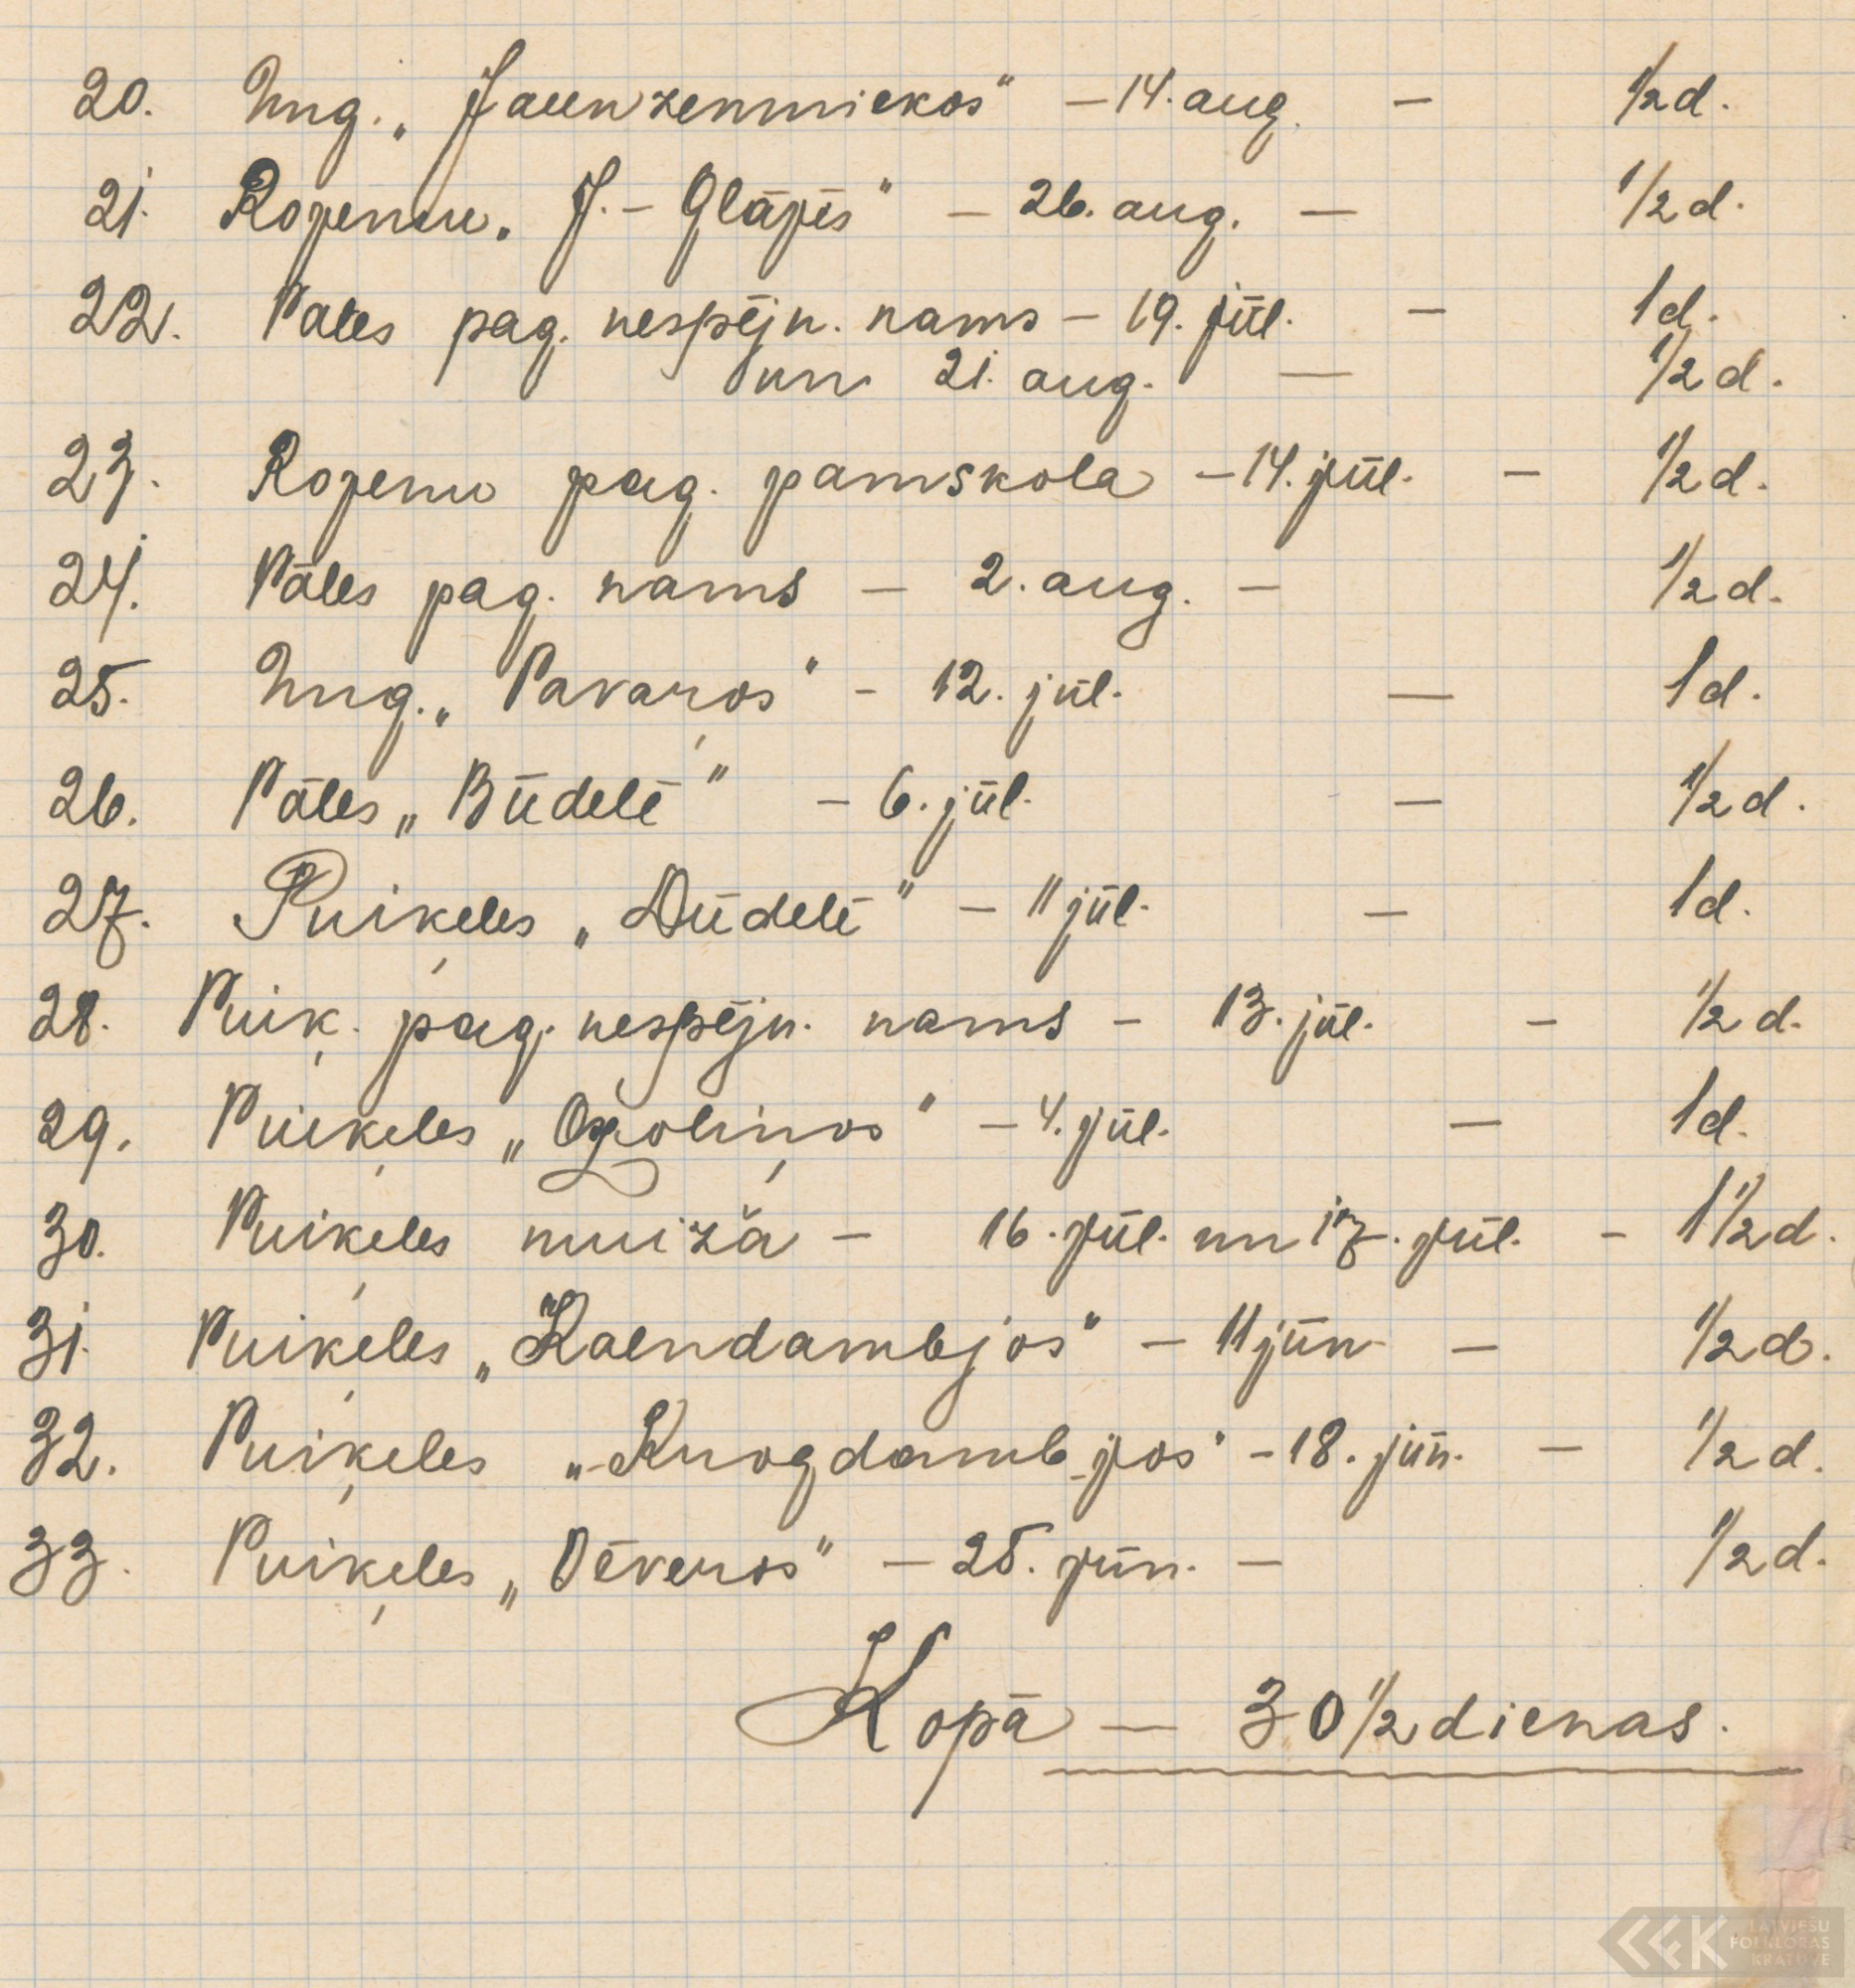 20. Ung. „Jaunzemniekos" — 14. aug. — 1/2 d.
21. Rozēnu „J.-Glāpēs" — 26. aug. — 1/2 d.
22. Pāles pag. nespējn. nams — 19. jūl. — 1 d.
un 21. aug. — 1/2 d.
23. Rozēnu pag. pamskola — 14. jūl. — 1/2 d.
24. Pāles pag. nams — 2. aug. — 1/2 d.
25. Ung. „Pavaŗos" — 12. jūl. — 1 d.
26. Pāles „Būdelē" — 6. jūl. — 1/2 d.
27. Puiķeles „Dūdelē" — 11 jūl. — 1 d.
28. Puiķ. pag. nespējn. nams — 13. jūl. — 1/2 d.
29. Puiķeles „Ozoliņos" — 4. jūl. — 1 d.
30. Puiķeles muižā — 16. jūl. un 17. jūl. — 1 1/2 d.
31. Puiķeles „Kalndambjos" — 11 jūn. — 1/2 d.
32. Puiķeles „Krogdambjos" — 18. jūn. — 1/2 d.
33. Puiķeles „Dēveros" — 25. jūn. — 1/2 d.
Kopā — 30 1/2 dienas.
LATVIEŠU
FOLKLORAS
KRĀTUVE